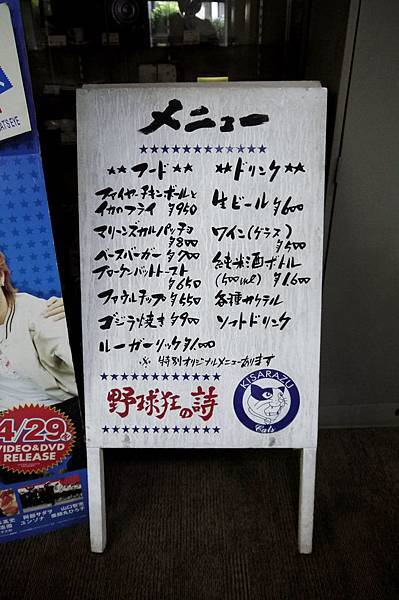 メニュー
★★★★★★★★★★★★
★★フード★★
ファイヤーチキンボールと
イカのフライ ¥950
マリーンズカルパッチョ
¥800
ベースバーガー ¥700
ブロークンバットトースト
¥650
ファウルチップ ¥550
ゴジラ焼き ¥900
ルーガーリック ¥1.000
★★ドリンク★★
生ビール ¥600
ワイン(グラス)
¥500
純米酒ボトル
(500ml) ¥1.600
各種カクテル
ソフトドリンク
※ 特別オリジナルメニューあります
野球狂の詩
KISARAZU
Cats
ATS EYE
4/29
VIDEO&DVD
RELEASE
阿部サダヲ 山口智充
ユンソナ 氣志團